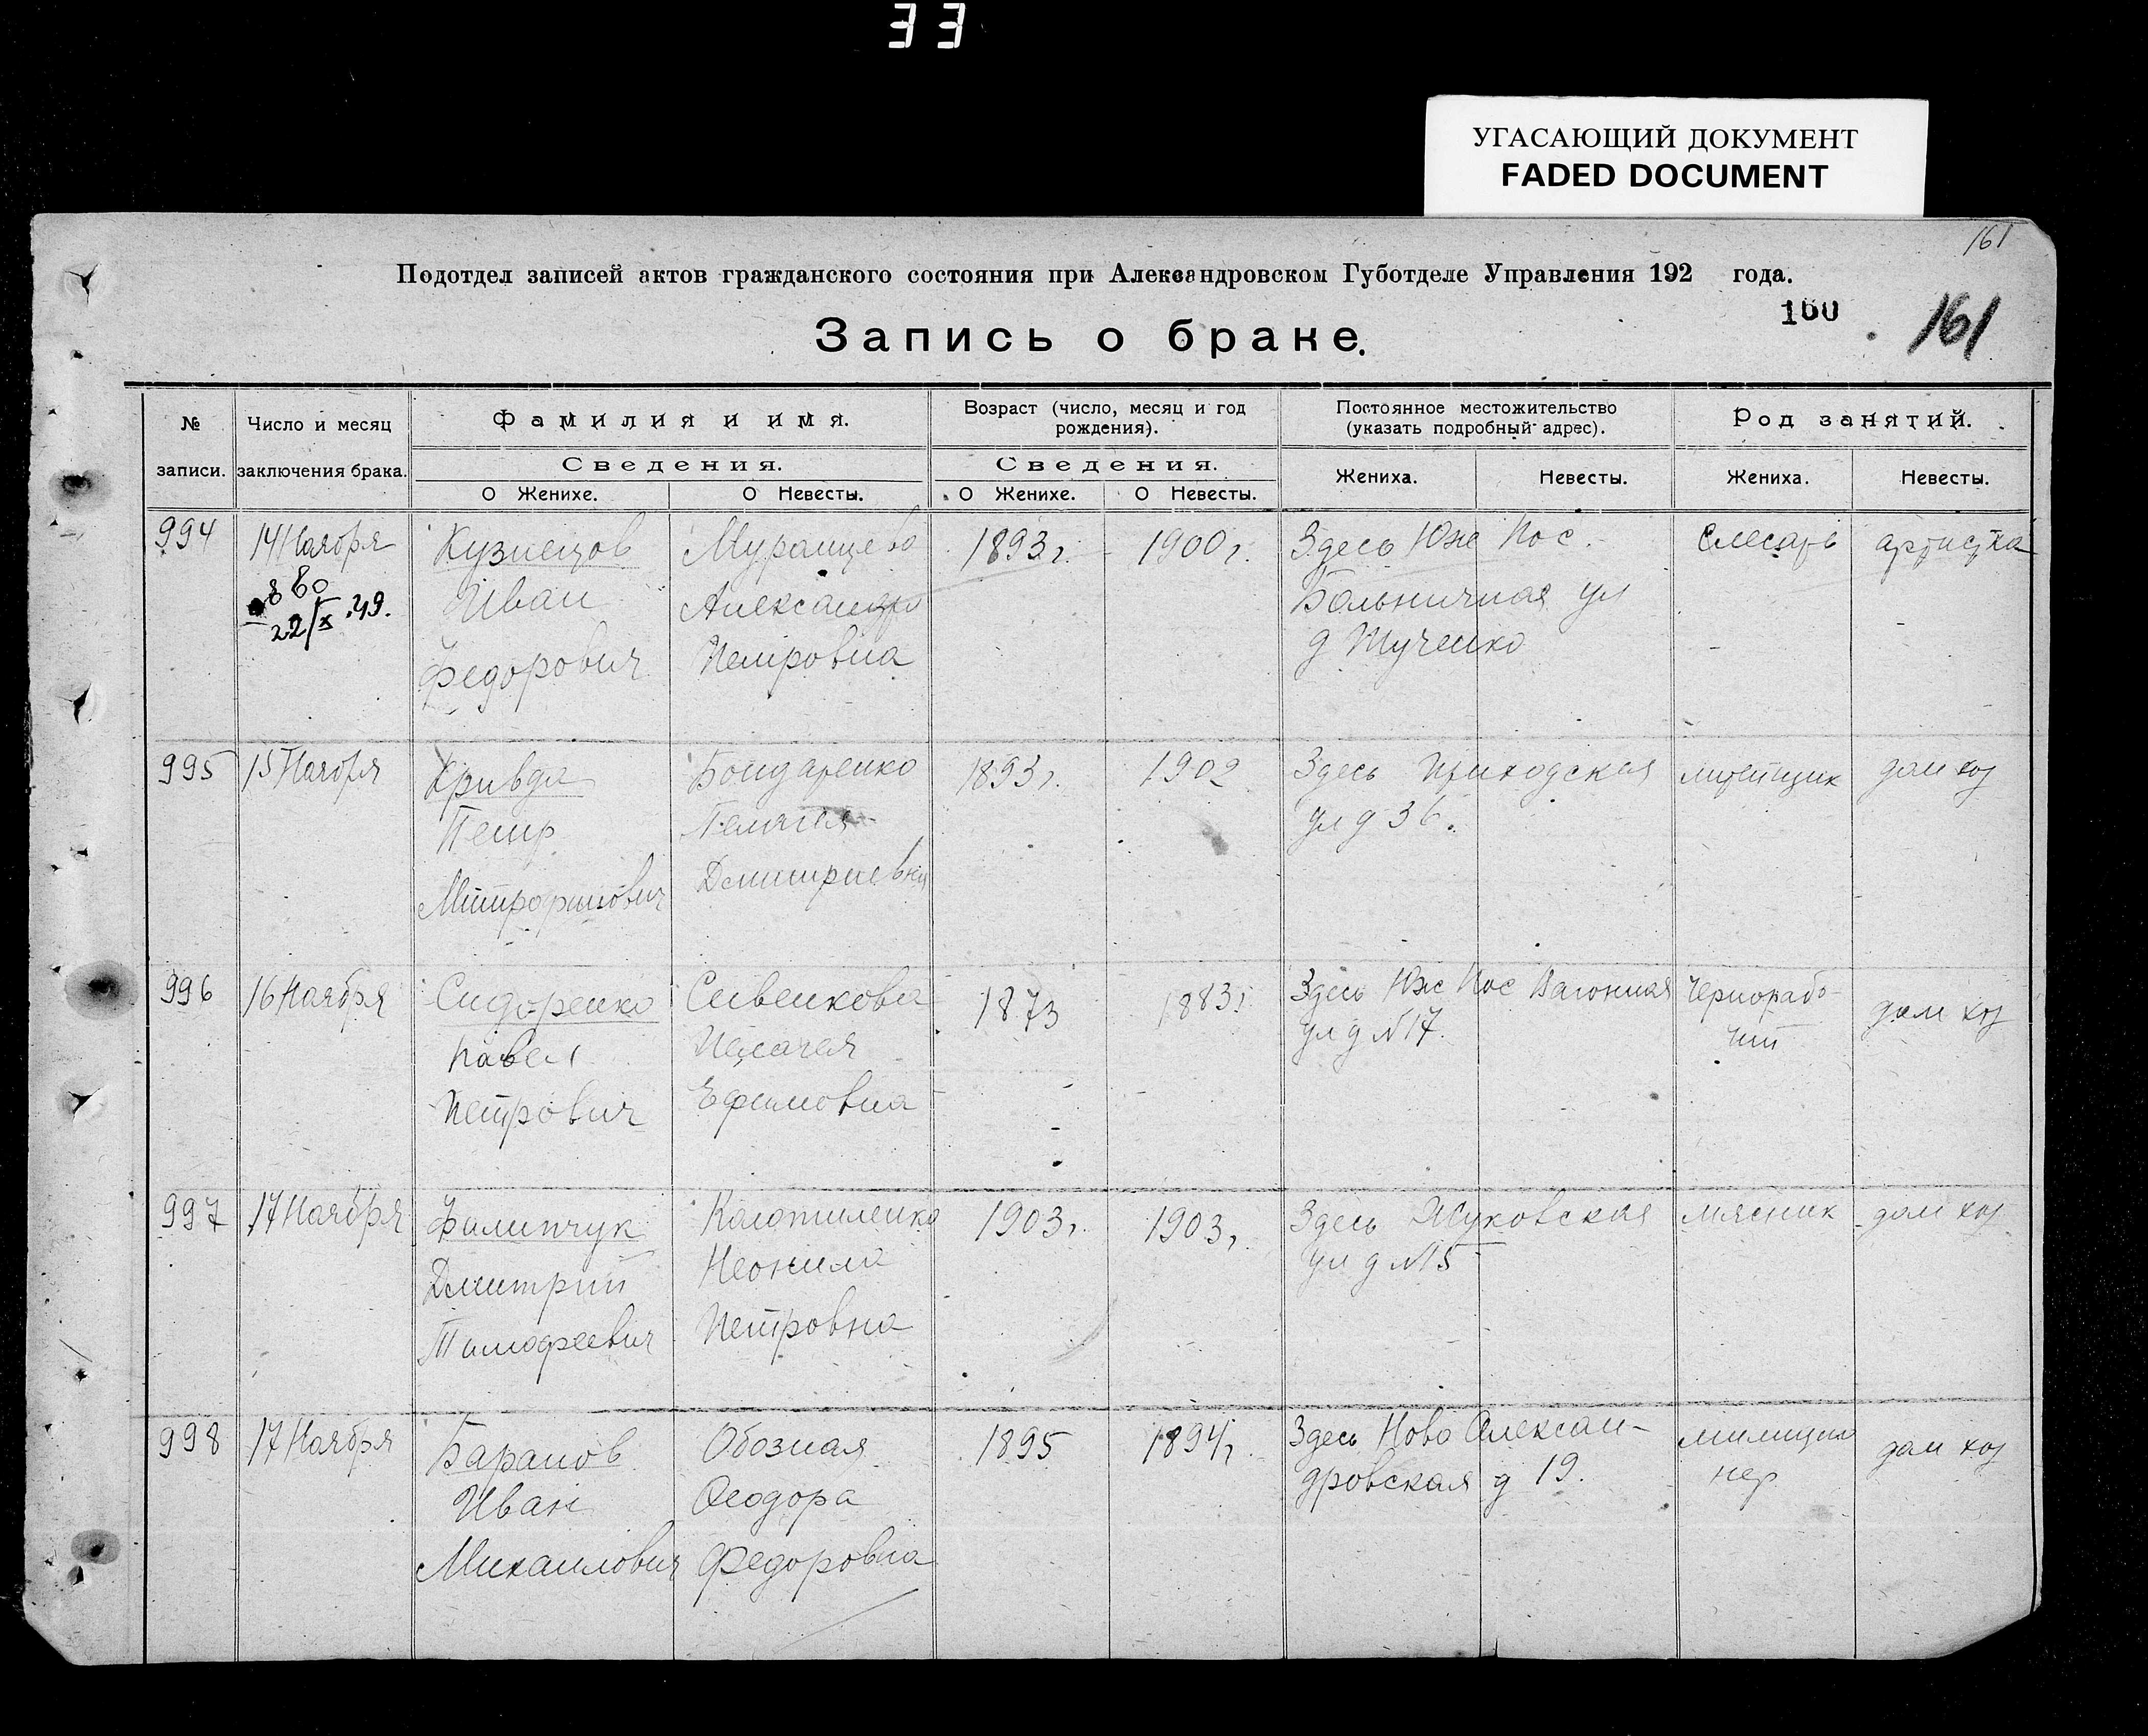 33
УГАСАЮЩИЙ ДОКУМЕНТ
FADED DOCUMENT
161
Подотдел записей актов гражданского состояния при Александровском Губотделе Управления 192 года.
160
161
Запись о браке.
№ записи.
Число и месяц заключения брака.
Фамилия и имя.
Сведения.
О Женихе.
О Невесты.
Возраст (число, месяц и год рождения).
Сведения.
О Женихе.
О Невесты.
Постоянное местожительство (указать подробный адрес).
Жениха.
Невесты.
Род занятий.
Жениха.
Невесты.
994
14 Ноября
860
22/X.49.
Кузнецов
Иван
Федорович
Муранцева
Александра
Петровна
1893 г.
1900 г.
Здесь Юж Пос.
Больничная ул
д Тученко
Слесарь
артистка
995
15 Ноября
Кривда
Петр
Митрофанович
Бондаренко
Пелагея
Дмитриевна
1893 г.
1902
Здесь Приходская
ул д 36.
литейщик
дом хоз
996
16 Ноября
Сидоренко
Павел
Петрович
Сивенкова
Пелагея
Ефимовна
1873
1883 г
Здесь Юж Пос Вагонная
ул д №17.
Чернорабо-
чий
дом хоз
997
17 Ноября
Филипчук
Дмитрий
Тимофеевич
Неонила
Петровна
1903 г.
1903 г.
Здесь Жуковская
ул д №15
мясник
дом хоз
998
17 Ноября
Баранов
Иван
Михаилович
Обозная
Феодора
Федоровна
1895
1894 г.
Здесь Ново Алексан-
дровская д 19.
милицио
нер
дом хоз